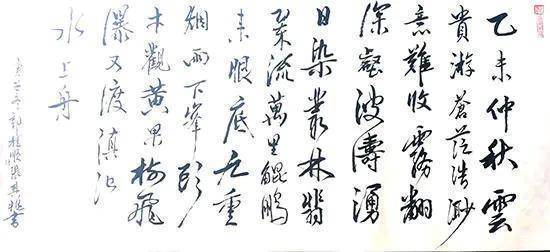 乙未仲秋雲
貴游蒼茫浩渺
意難收霧翻
深壑波濤湧
日染叢林翡
翠流萬里鯤鵬
来眼底九重
煙雨下峯頭
才觀黃果樹飛
瀑又渡滇池
水上舟
書